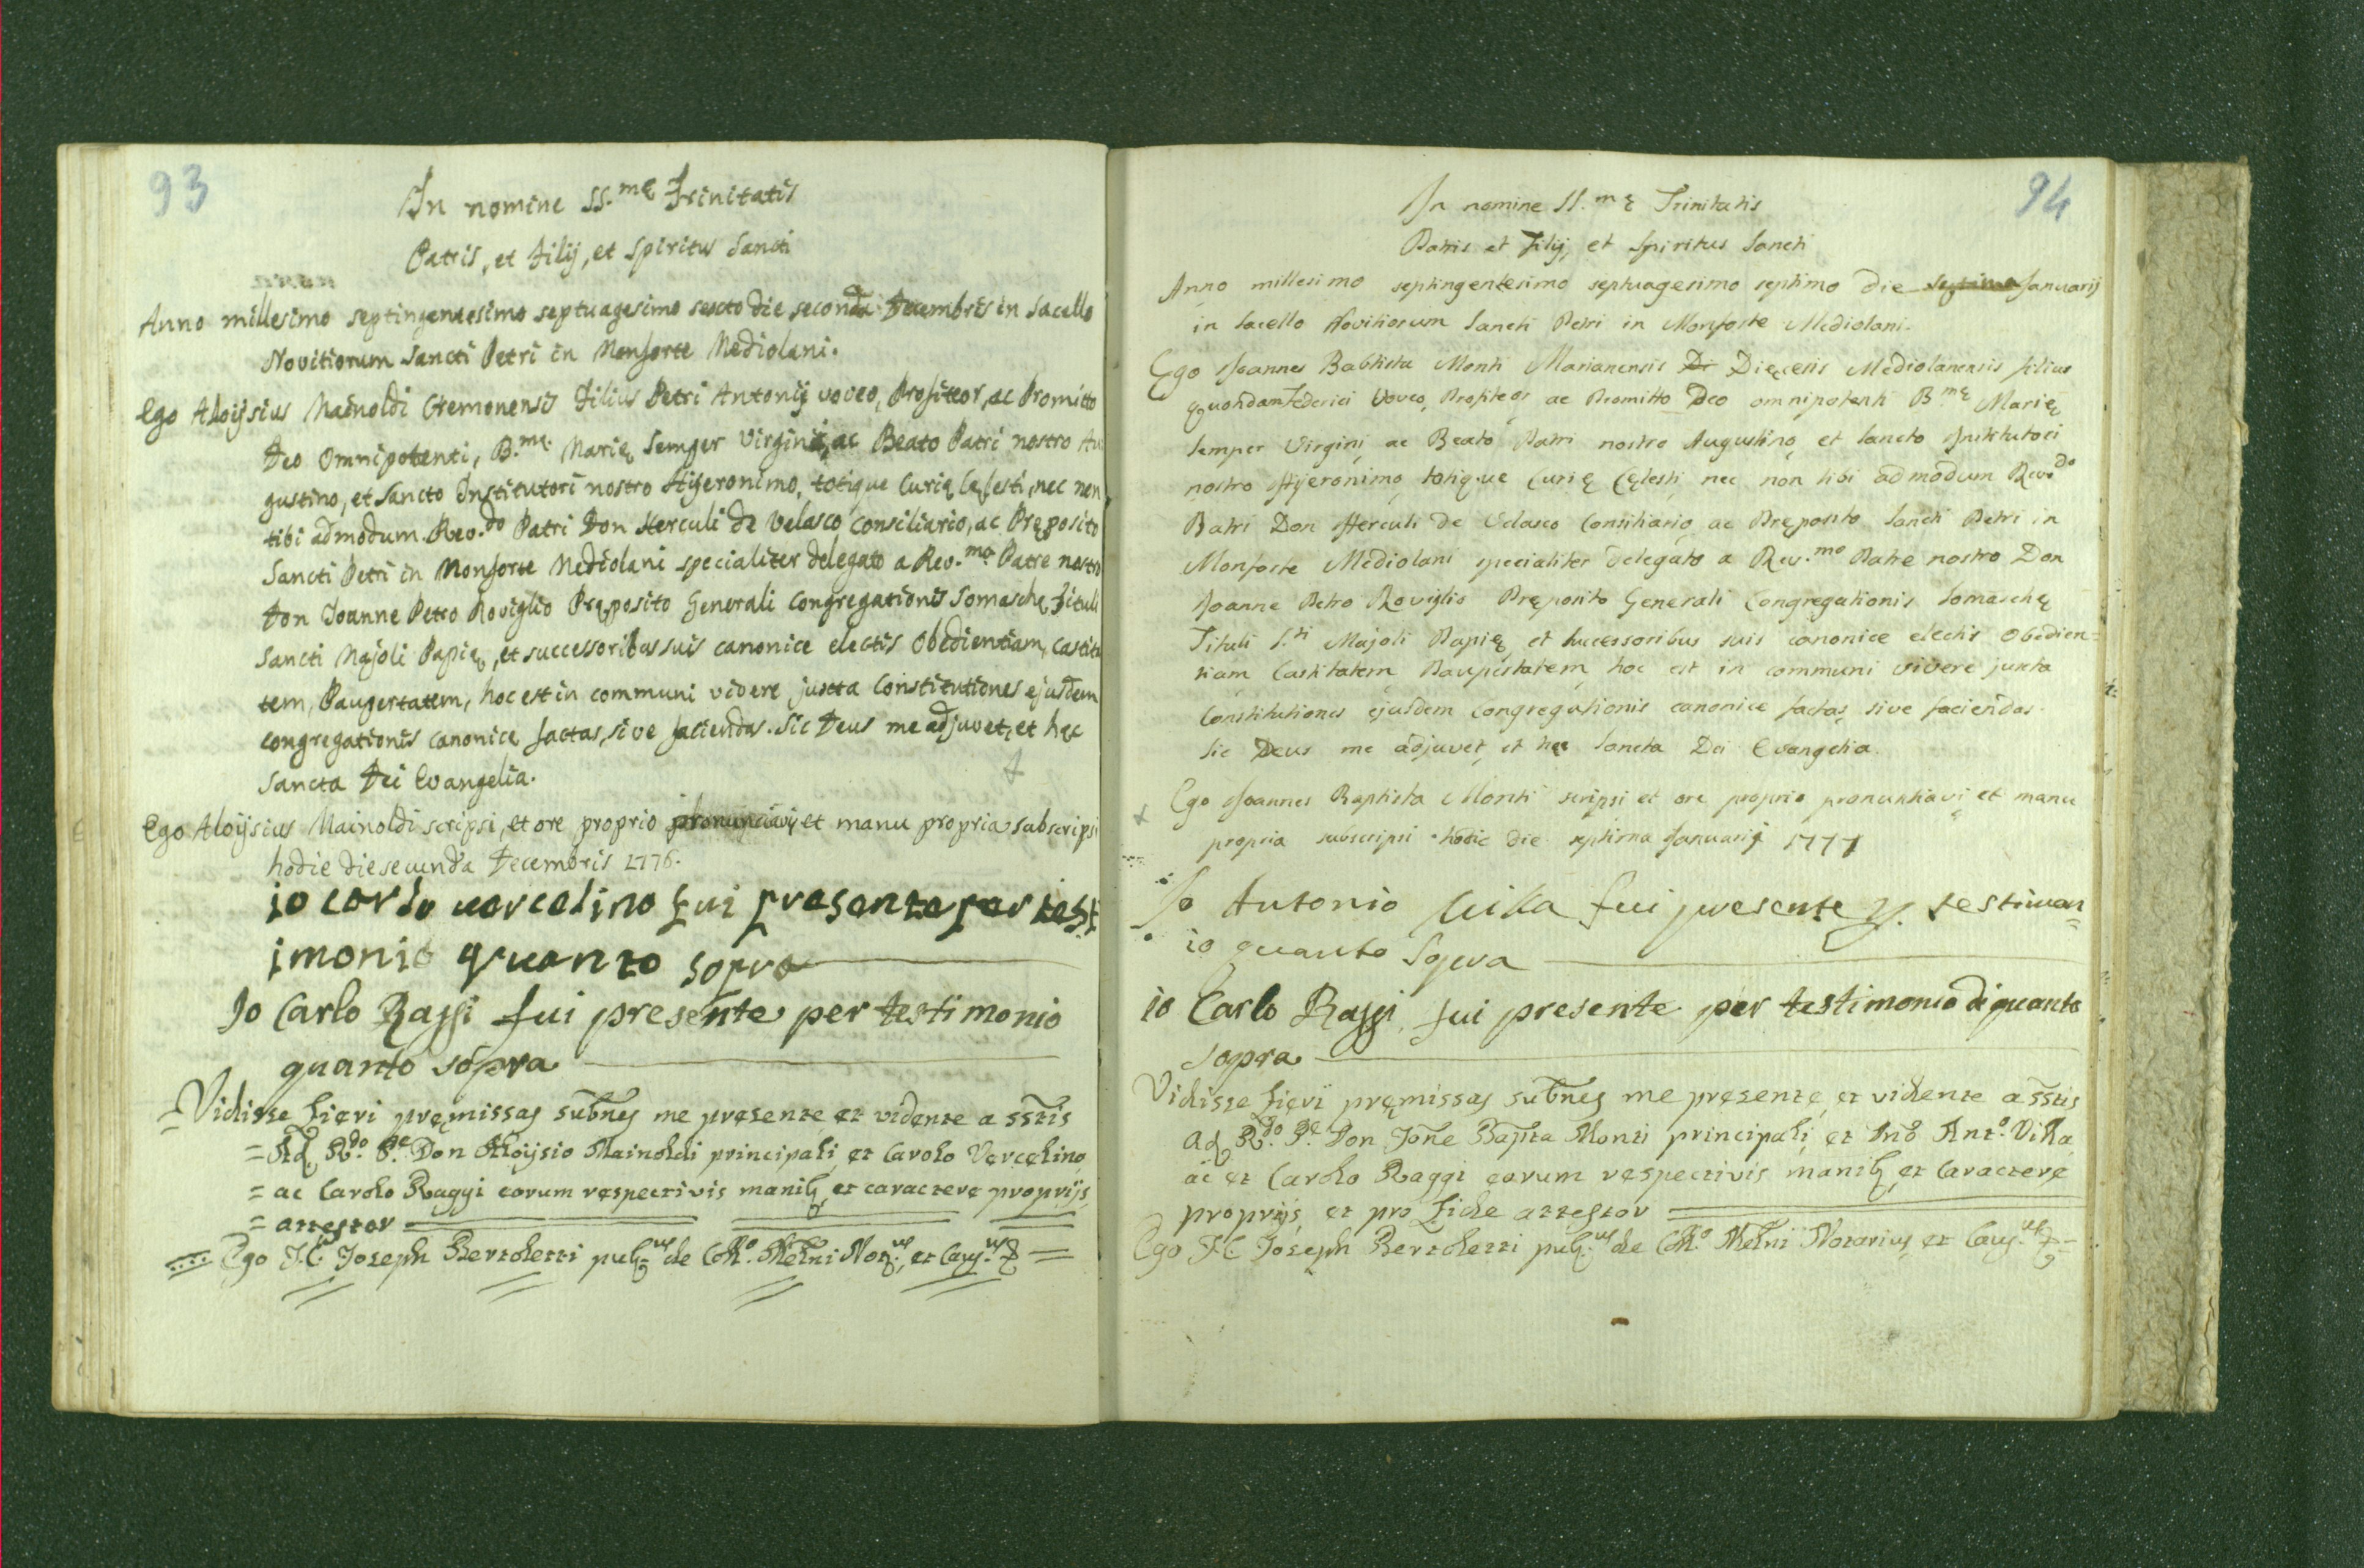 93
In nomine SS.mę Trinitatis
Patris, et Filij, et Spiritus Sancti
Anno millesimo septingentesimo septuagesimo sexto die seconda Decembris in Sacello
Novitiorum Sancti Petri in Monforte Mediolani.
Ego Aloijsius Mainoldi Cremonensis Filius Petri Antonij voveo, Profiteor, ac Promitto
Deo Omnipotenti, B.mę Marię Semper Virgini, ac Beato Patri nostro Au
gustino, et Sancto Institutori nostro Hijeronimo, totique Curię Cęlesti, nec non
tibi admodum Rev.do Patri Don Herculi de Velasco Consiliario, ac Pręposito
Sancti Petri in Monforte Mediolani specialiter delegato a Rev.mo Patre nostro
Don Joanne Petro Roviglio Pręposito Generali Congregationis Somaschę Tituli
Sancti Majoli Papię, et successoribus suis canonice electis Obedientiam, Castita
tem, Paupertatem, hoc est in communi vivere juxta Constitutiones ejusdem
congregationis canonice factas, sive faciendas. Sic Deus me adjuvet, et hęc
Sancta Dei Evangelia.
Ego Aloijsius Mainoldi scripsi, et ore proprio pronunciavi, et manu propria subscripsi
hodie die secunda Decembris 1776.
io carlo vercelino fui presente per test
imonio quanto sopra
Io Carlo Raggi fui presente per testimonio
quanto sopra
Vidisse fieri pręmissas subnes me pręsente et vidente a sstis
= Ad. R.do P.e Don Aloijsio Mainoldi principali, et Carolo Vercelino,
= ac Carolo Raggi eorum respectivis manib, et caractere proprijs,
= attestor
Ego J.C. Joseph Bertoletti pub.us de Coll.o Melni Not.us, et Caus.us
94
In nomine SS.mę Trinitatis
Patris et Filij, et Spiritus Sancti
Anno millesimo septingentesimo septuagesimo septimo die septima Januarij
in Sacello Novitiorum Sancti Petri in Monforte Mediolani.
Ego Joannes Babtista Monti Marianensis Di Dięcesis Mediolanensis filius
quondam Federici Voveo, Profiteor, ac Promitto Deo omnipotenti B.mę Marię
semper Virgini, ac Beato Patri nostro Augustino, et Sancto Institutori
nostro Hijeronimo, totique Curię Cęlesti, nec non tibi admodum Rev.do
Patri Don Herculi de Velasco Consiliario, ac Pręposito Sancti Petri in
Monforte Mediolani specialiter delegato a Rev.mo Patre nostro Don
Joanne Petro Roviglio Pręposito Generali Congregationis Somaschę
Tituli S.ti Majoli Papię, et successoribus suis canonice electis Obedien=
tiam, Castitatem, Paupertatem, hoc est in communi vivere juxta
Constitutiones ejusdem Congregationis canonice factas, sive faciendas.
Sic Deus me adjuvet, et hęc Sancta Dei Evangelia.
Ego Joannes Baptista Monti scripsi et ore proprio pronuntiavi, et manu
propria subscripsi hodie die septima Januarij 1777
Io Antonio Villa fui presente p. testimon=
io quanto Sopra
io Carlo Raggi fui presente per testimonio di quanto
sopra
Vidisse fieri pręmissas subnes me pręsente, et vidente a sstis
Ad. R.do P.e Don Jone Bapta Monti principali, et Antº. Villa,
ac et Carolo Raggi eorum respectivis manib, et caractere
proprijs, et pro fide attestor
Ego J.C. Joseph Bertoletti pub.us de Coll.o Melni Notarius, et Caus.us